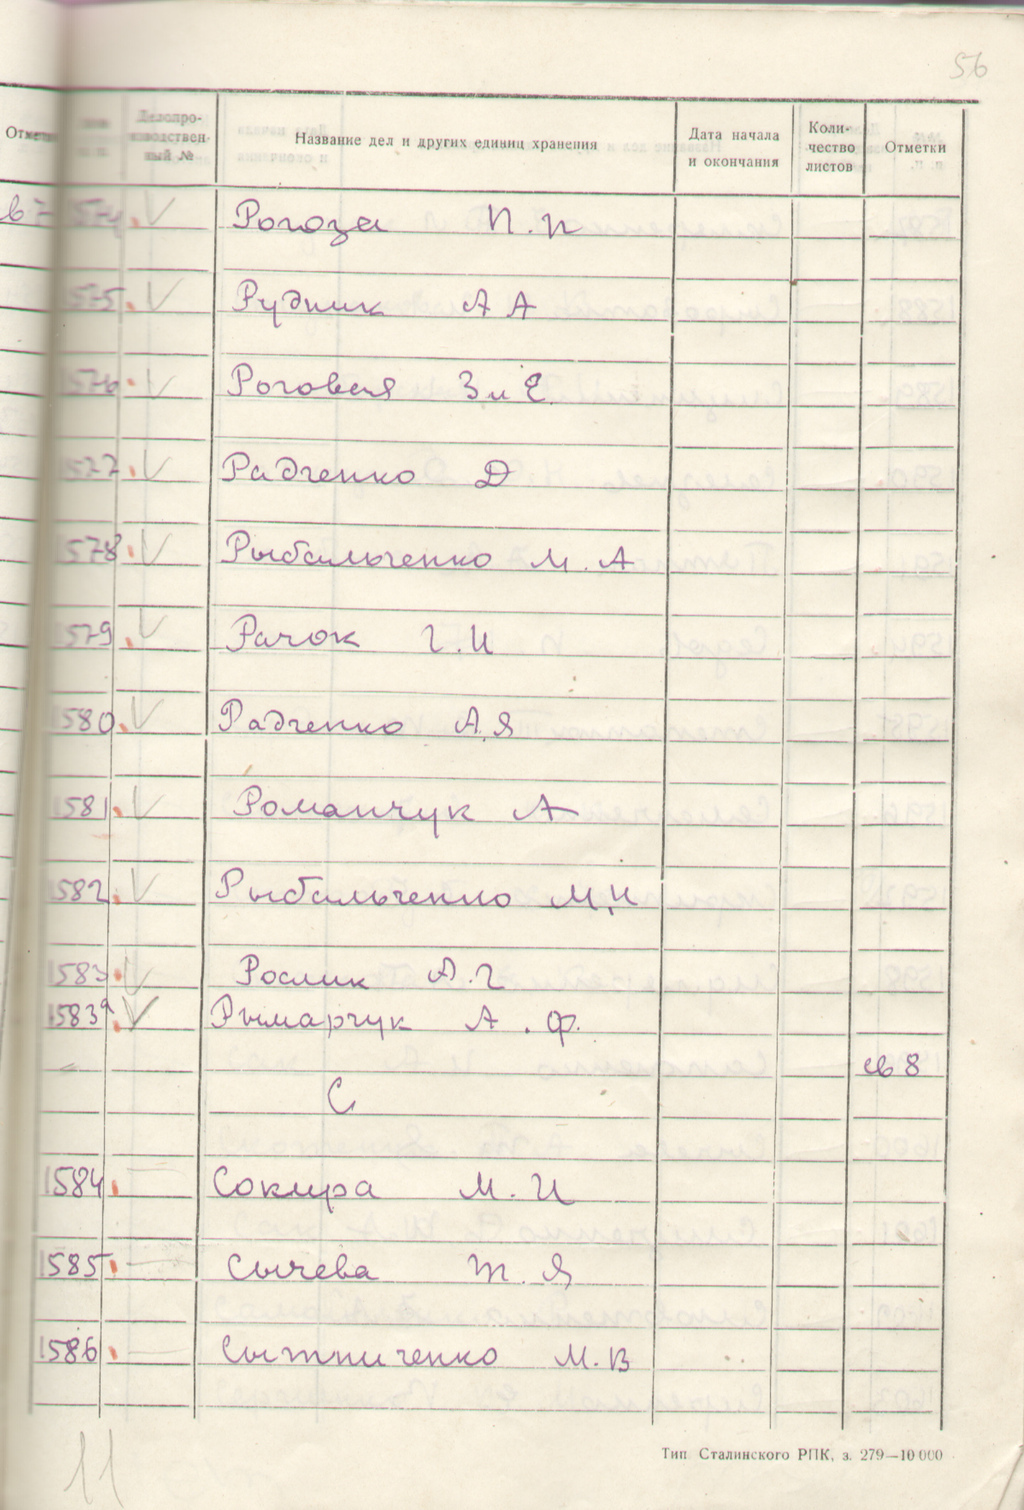 56
Отметки
Делопро-
изводствен-
ный №
Название дел и других единиц хранения
Дата начала
и окончания
Коли-
чество
листов
Отметки
1574. Рогоза П.П
1575. Рудник А А
1576. Роговая З и Е.
1577. Радченко Д
1578. Рыбальченко М.А
1579. Рачок Г.И
1580. Радченко А.Я
1581. Романчук А
1582. Рыбальченко М.И
1583. Рослик А.Г
1583а. Рымарчук А.Ф.
св 8
С
1584. Сокира М.И
1585. Сычева Т.Я
1586. Сытниченко М.В
Тип Сталинского РПК, з. 279—10 000
11